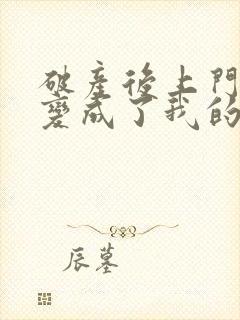 破產後上門
變成了我的
辰墓